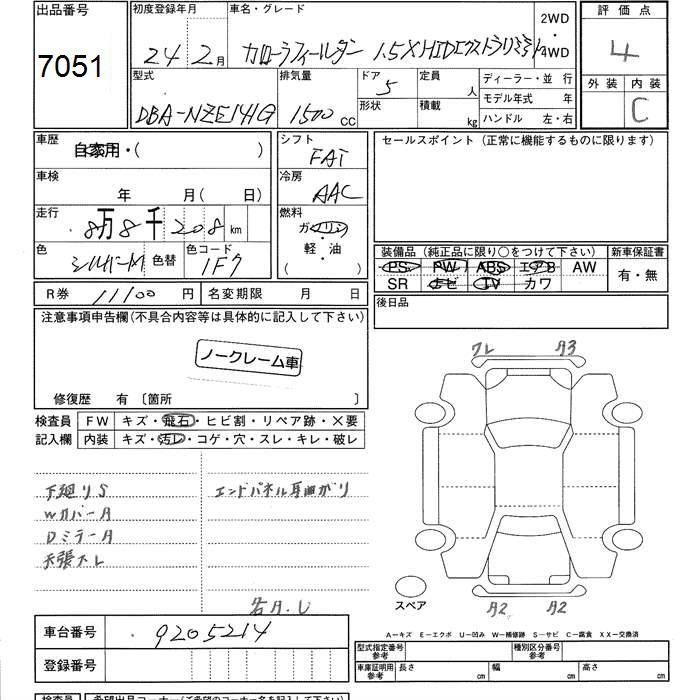 出品番号
7051
初度登録年月
24 2月
車名・グレード
カローラフィールダー 1.5X HIDエクストラリミテッド
2WD
4WD
評価点
4
外装 内装
C
型式
DBA-NZE141G
排気量
1500 cc
ドア
5
形状
定員
人
積載
kg
ディーラー・並行
モデル年式 年
ハンドル 左・右
車歴
自家用・( )
車検
年 月( 日)
走行
8万8千208km
色
シルバーM
色替
色コード
1F7
シフト
FAT
冷房
AAC
燃料
ガソリン
軽・油
( )
セールスポイント (正常に機能するものに限ります)
装備品 (純正品に限り○をつけて下さい)
PS PW ABS エアB AW
SR ナビ TV カワ
新車保証書
有・無
後日品
R券 11100円
名変期限 月 日
注意事項申告欄(不具合内容等は具体的に記入して下さい)
ノークレーム車
修復歴 有 〔箇所 〕
検査員
記入欄
FW キズ・飛石・ヒビ割・リペア跡・×要
内装 キズ・汚レ・コゲ・穴・スレ・キレ・破レ
下廻りS
Wカバー A
Dミラー A
天張大レ
エンドパネル耳曲がり
各A.U
ワレ
A3
A2
A2
スペア
A-キズ E-エクボ U-凹み W-補修跡 S-サビ C-腐食 XX-交換済
車台番号
9205214
登録番号
型式指定番号
参考
種別区分番号
参考
車庫証明用
参考
長さ cm
幅 cm
高さ cm